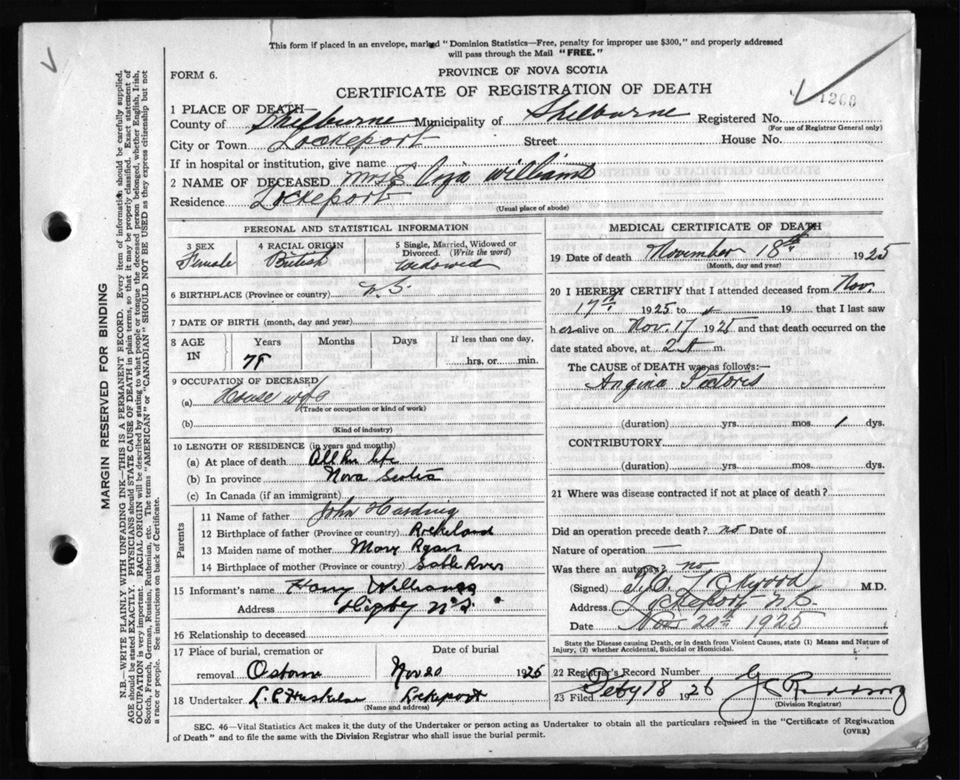 This form if placed in an envelope, marked "Dominion Statistics—Free, penalty for improper use $300," and properly addressed
will pass through the Mail "FREE."
FORM 6.
PROVINCE OF NOVA SCOTIA
CERTIFICATE OF REGISTRATION OF DEATH
1260
1 PLACE OF DEATH—
County of Shelburne Municipality of Shelburne Registered No.
(For use of Registrar General only)
City or Town Lockeport Street House No.
If in hospital or institution, give name
2 NAME OF DECEASED Mrs Williams
Residence Lockeport
(Usual place of abode)
PERSONAL AND STATISTICAL INFORMATION
3 SEX 4 RACIAL ORIGIN 5 Single, Married, Widowed or
Divorced. (Write the word)
Female British Widowed
6 BIRTHPLACE (Province or country) N.S.
7 DATE OF BIRTH (month, day and year)
8 AGE IN Years Months Days If less than one day,
hrs. or min.
9 OCCUPATION OF DECEASED
(a) House wife
(Trade or occupation or kind of work)
(b)
(Kind of industry)
10 LENGTH OF RESIDENCE (in years and months)
(a) At place of death All her life
(b) In province Nova Scotia
(c) In Canada (if an immigrant)
Parents
11 Name of father John Harding
12 Birthplace of father (Province or country) Rockland
13 Maiden name of mother Mary Ryan
14 Birthplace of mother (Province or country) Sable River
15 Informant's name Harry Williams
Address N.S.
16 Relationship to deceased
17 Place of burial, cremation or Date of burial
removal Osborne Nov 20 1925
18 Undertaker Lockeport
(Name and address)
MEDICAL CERTIFICATE OF DEATH
19 Date of death November 18th 1925
(Month, day and year)
20 I HEREBY CERTIFY that I attended deceased from Nov.
17th 1925 to 19 that I last saw
her alive on Nov. 17 1925 and that death occurred on the
date stated above, at 2 A m.
The CAUSE of DEATH was as follows:—
Angina Pectoris
(duration) yrs. mos. 1 dys.
CONTRIBUTORY
(duration) yrs. mos. dys.
21 Where was disease contracted if not at place of death?
Did an operation precede death? no Date of
Nature of operation —
Was there an autopsy? no
(Signed) Atwood M.D.
Address Lockeport N.S.
Date Nov 20th 1925
State the Disease causing Death, or in death from Violent Causes, state (1) Means and Nature of
Injury, (2) whether Accidental, Suicidal or Homicidal.
22 Registrar's Record Number
23 Filed Feby 18 1926
(Division Registrar)
SEC. 46—Vital Statistics Act makes it the duty of the Undertaker or person acting as Undertaker to obtain all the particulars required in the "Certificate of Registration
of Death" and to file the same with the Division Registrar who shall issue the burial permit.
(OVER)
MARGIN RESERVED FOR BINDING
N.B.—WRITE PLAINLY WITH UNFADING INK—THIS IS A PERMANENT RECORD. Every item of information should be carefully supplied.
AGE should be stated EXACTLY. PHYSICIANS should STATE CAUSE OF DEATH in plain terms, so that it may be properly classified. Exact statement of
OCCUPATION is very important. RACIAL ORIGIN will be described by stating to what people or tongue the deceased person belonged, whether English, Irish,
Scotch, French, German, Russian, Ruthenian, etc. The terms "AMERICAN" or "CANADIAN" SHOULD NOT BE USED as they express citizenship but not
a race or people. See instructions on back of Certificate.